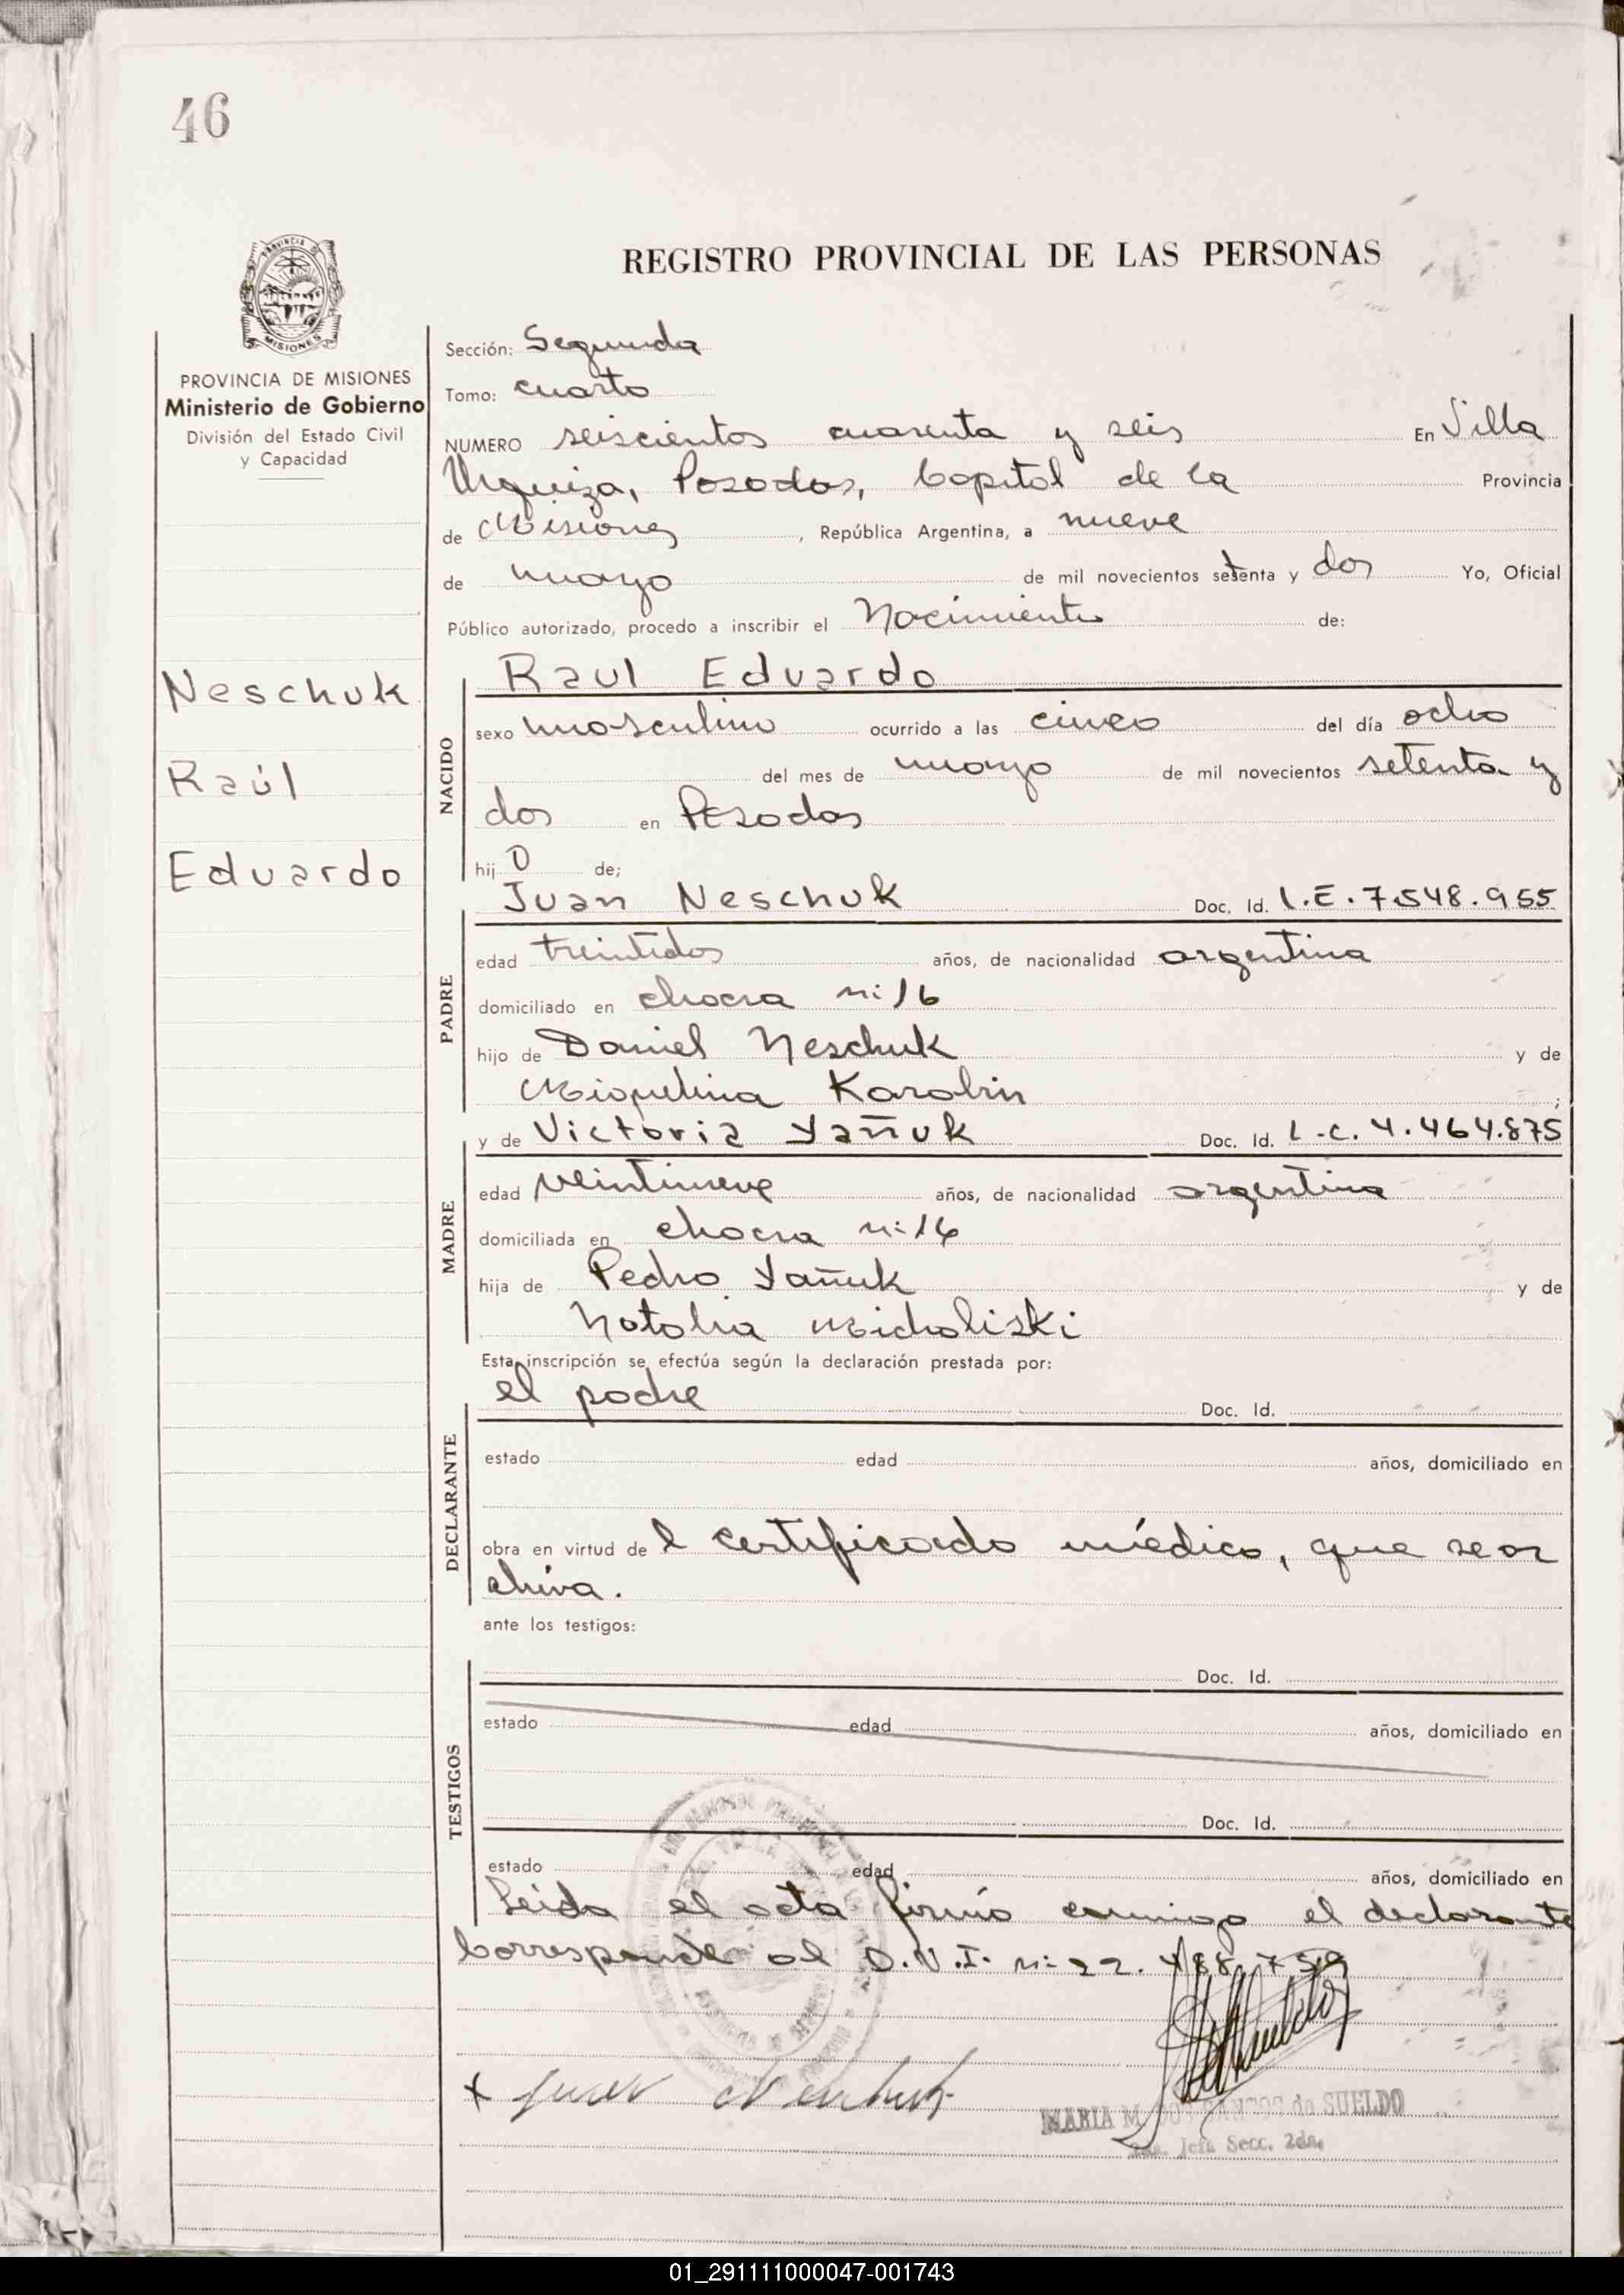 46
REGISTRO PROVINCIAL DE LAS PERSONAS
MISIONES
PROVINCIA DE MISIONES
Ministerio de Gobierno
División del Estado Civil
y Capacidad
Neschuk
Raúl
Eduardo
Sección: Segunda
Tomo: cuarto
NUMERO seiscientos cuarenta y seis En Villa
Urquiza, Posadas, Capital de la Provincia
de Misiones, República Argentina, a nueve
de mayo de mil novecientos setenta y dos Yo, Oficial
Público autorizado, procedo a inscribir el Nacimiento de:
Raul Eduardo
NACIDO
sexo masculino ocurrido a las cinco del día ocho
del mes de mayo de mil novecientos setenta y
dos en Posadas
hijo de;
Juan Neschuk Doc. Id. L.E. 7.548.955
PADRE
edad treintidos años, de nacionalidad argentina
domiciliado en chacra n: 16
hijo de Daniel Neschuk y de
Miquelina Karabin;
y de Victoria Yañuk Doc. Id. L.C. 4.464.875
MADRE
edad veintinueve años, de nacionalidad argentina
domiciliada en chacra n: 16
hija de Pedro Yañuk y de
Natalia Micholiski
Esta inscripción se efectúa según la declaración prestada por:
el padre Doc. Id.
DECLARANTE
estado edad años, domiciliado en
obra en virtud de l certificado médico, que se ar
chiva.
ante los testigos:
Doc. Id.
TESTIGOS
estado edad años, domiciliado en
Doc. Id.
estado edad años, domiciliado en
Leida el acta firmó conmigo el declarante
Corresponde al D.N.I. n: 22.488.759
x Juan Neschuk
MARIA M. de SUELDO
Jefa Secc. 2da.
01_291111000047-001743